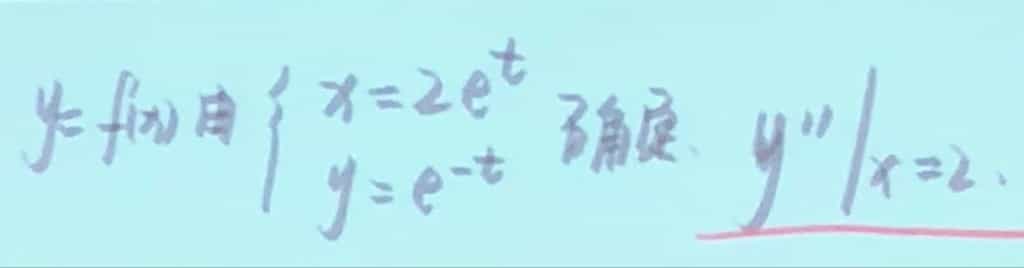 y=f(x)由{x=2e^t
y=e^{-t} 确定. y''|x=2.